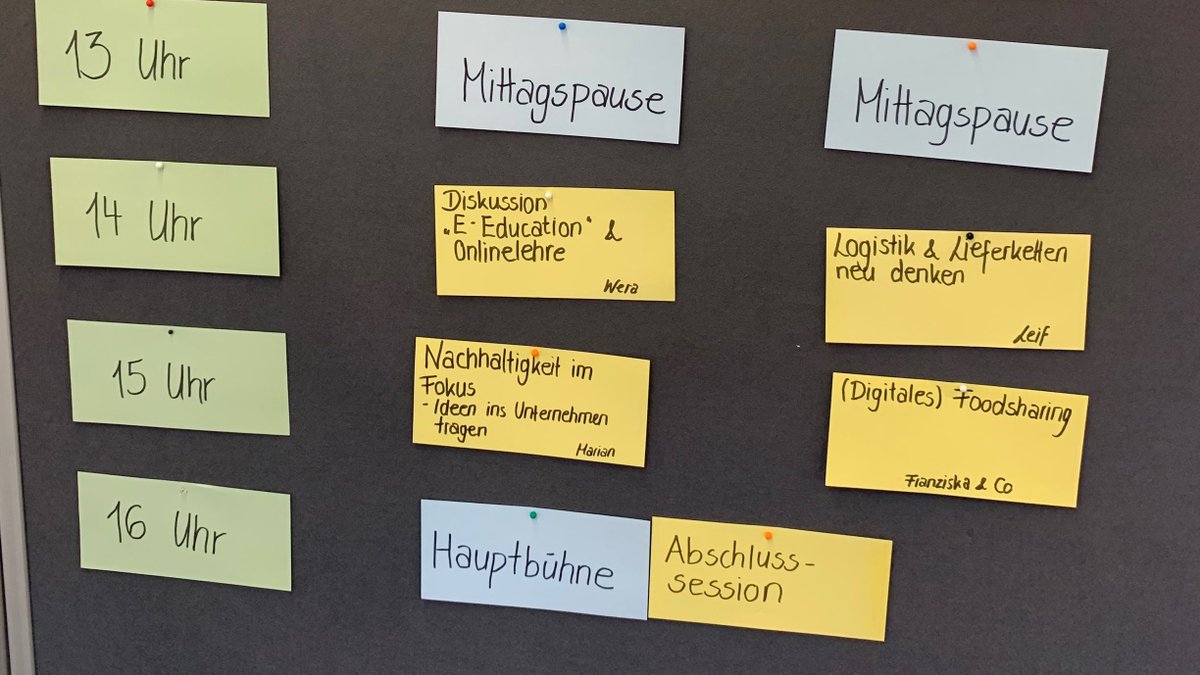 13 Uhr
Mittagspause
Mittagspause
14 Uhr
Diskussion
„E-Education“ &
Onlinelehre
Wera
Logistik & Lieferketten
neu denken
Leif
15 Uhr
Nachhaltigkeit im
Fokus
- Ideen ins Unternehmen
tragen
Marian
(Digitales) Foodsharing
Franziska & Co
16 Uhr
Hauptbühne
Abschluss-
session